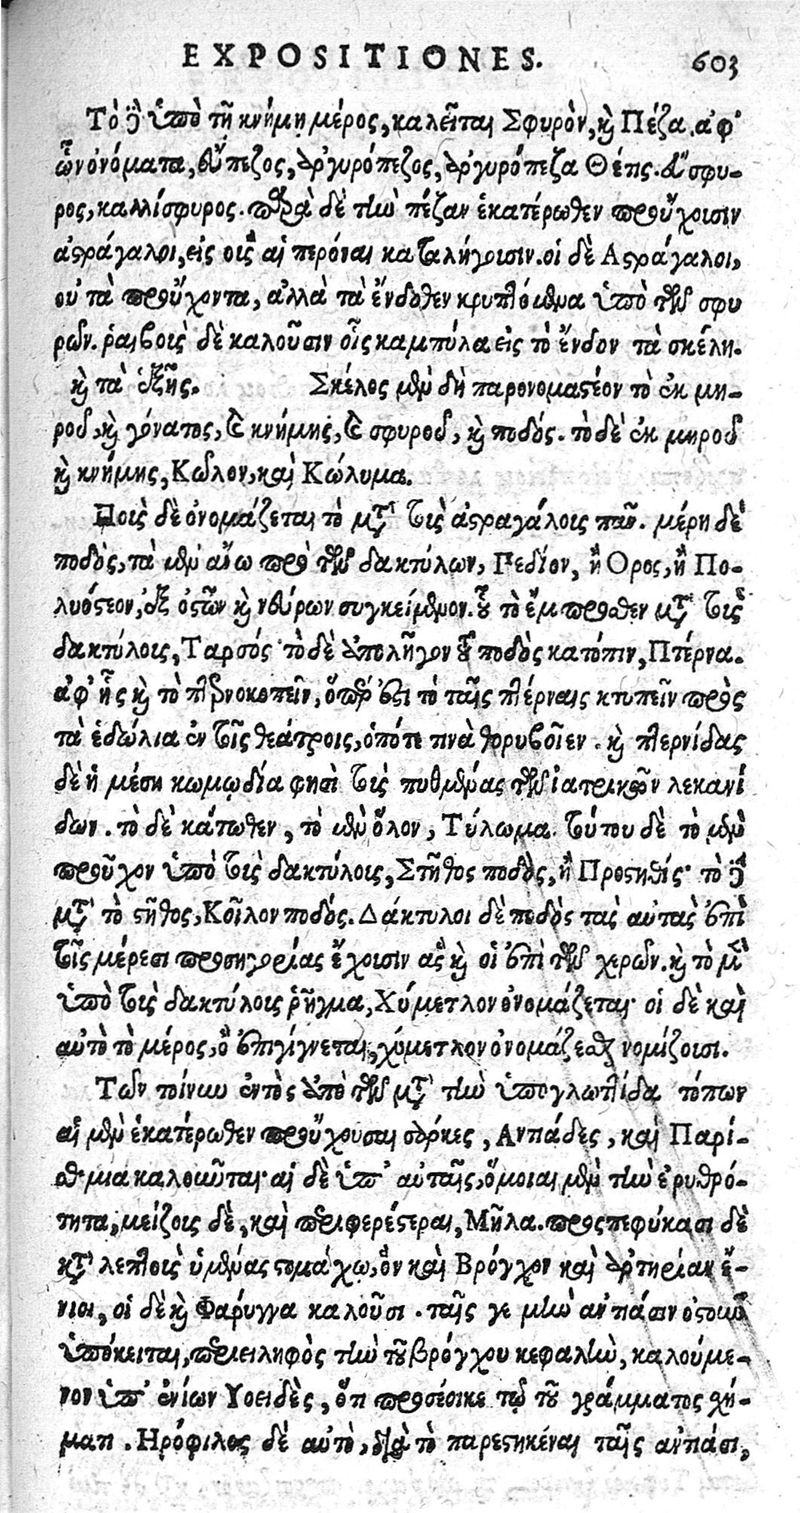 EXPOSITIONES. 603
Τὸ ὑπὸ τῇ κνήμῃ μέρος, καλεῖται Σφυρὸν, καὶ Πέζα. ἀφ'
ὧν ὀνόματα, εὔπεζος, ἀργυρόπεζος, ἀργυρόπεζα Θέτις. εὔσφυ-
ρος, καλλίσφυρος. παρὰ δὲ τὴν πέζαν ἑκατέρωθεν προὔχουσιν
ἀστράγαλοι, εἰς οὓς αἱ περόναι καταλήγουσιν. οἱ δὲ Ἀστράγαλοι,
οὐ τὰ προὔχοντα, ἀλλὰ τὰ ἔνδοθεν κρυπτόμενα ὑπὸ τῶν σφυ
ρῶν. ῥαιβοὺς δὲ καλοῦσιν οἷς καμπύλα εἰς τὸ ἔνδον τὰ σκέλη.
καὶ τὰ ἑξῆς. Σκέλος μὲν δὴ παρονομαστέον τὸ ἐκ μη-
ροῦ, καὶ γόνατος, καὶ κνήμης, καὶ σφυροῦ, καὶ ποδός. τὸ δὲ ἐκ μηροῦ
καὶ κνήμης, Κῶλον, καὶ Κώλυμα.
Ποῦς δὲ ὀνομάζεται τὸ μετὰ τοὺς ἀστραγάλους πᾶν. μέρη δὲ
ποδὸς, τὰ μὲν ἄνω πρὸ τῶν δακτύλων, Πεδίον, ἢ Ὄρος, ἢ Πο-
λυόστεον, ἐξ ὀστῶν καὶ νεύρων συγκείμενον. οὗ τὸ ἔμπροσθεν μετὰ τοὺς
δακτύλους, Ταρσός· τὸ δὲ ἀπολῆγον τοῦ ποδὸς κατόπιν, Πτέρνα.
ἀφ' ἧς καὶ τὸ πτερνοκοπεῖν, ὅπερ ἐστὶ τὸ ταῖς πτέρναις κτυπεῖν πρὸς
τὰ ἑδώλια ἐν τοῖς θεάτροις, ὁπότε τινὰ θορυβοῖεν. καὶ πτερνίδας
δὲ ἡ μέση κωμῳδία φησὶ τοὺς πυθμένας τῶν ἰατρικῶν λεκανί
δων. τὸ δὲ κάτωθεν, τὸ μὲν ὅλον, Τύλωμα. τούτου δὲ τὸ μὲν
προὖχον ὑπὸ τοὺς δακτύλους, Στῆθος ποδὸς, ἢ Προστηθίς· τὸ δὲ
μετὰ τὸ στῆθος, Κοῖλον ποδός. Δάκτυλοι δὲ ποδὸς τὰς αὐτὰς ἐπὶ
τοῖς μέρεσι προσηγορίας ἔχουσιν ἃς καὶ οἱ ἐπὶ τῶν χερῶν. καὶ τὸ μὲν
ὑπὸ τοὺς δακτύλους ῥῆγμα, Χύμετλον ὀνομάζεται· οἱ δὲ καὶ
αὐτὸ τὸ μέρος, ᾧ ἐπιγίγνεται, χύμετλον ὀνομάζεσθαι νομίζουσι.
Τῶν τοίνυν ἐντὸς ἀπὸ τῶν μετὰ τὴν ὑπογλωττίδα τόπων
αἱ μὲν ἑκατέρωθεν προὔχουσαι σάρκες, Ἀντιάδες, καὶ Παρί-
σθμια καλοῦνται· αἱ δὲ ὑπ' αὐταῖς, ὅμοιαι μὲν τὴν ἐρυθρό-
τητα, μείζους δὲ, καὶ περιφερέστεραι, Μῆλα. προσπεφύκασι δὲ
κατὰ λεπτοὺς ὑμένας στομάχῳ, ὃν καὶ Βρόγχον καὶ ἀρτηρίαν ἔ-
νιοι, οἱ δὲ καὶ Φάρυγγα καλοῦσι. ταῖς γε μὴν ἀντιάσιν ὀστοῦν
ὑπόκειται, περιειληφὸς τὴν τοῦ βρόγχου κεφαλὴν, καλούμε-
νον ὑπ' ἐνίων Ὑοειδὲς, ὅτι προσέοικε τῷ τοῦ γράμματος σχή-
ματι. Ἡρόφιλος δὲ αὐτὸ, διὰ τὸ παρεστηκέναι ταῖς ἀντιάσι,